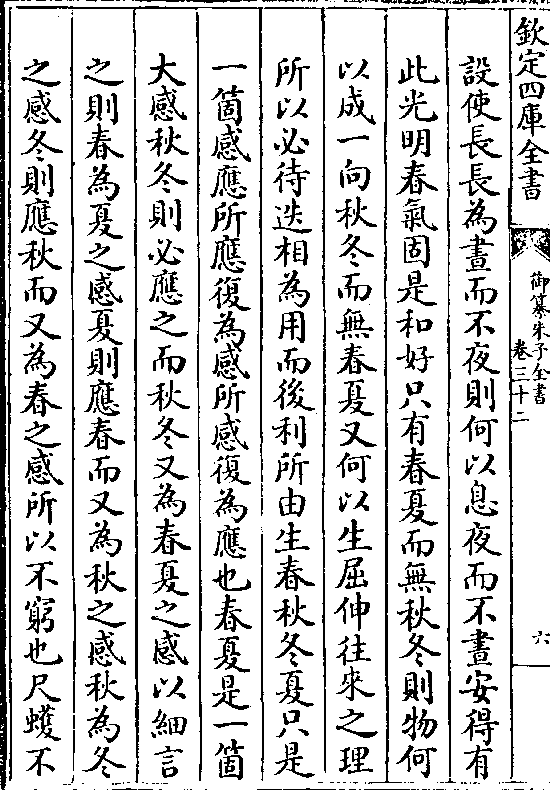 欽定四庫全書
御纂朱子全書
卷三十二
六
設使長長為晝而不夜則何以息夜而不晝安得有
此光明春氣固是和好只有春夏而無秋冬則物何
以成一向秋冬而無春夏又何以生屈伸往來之理
所以必待迭相為用而後利所由生春秋冬夏只是
一箇感應所應復為感所感復為應也春夏是一箇
大感秋冬則必應之而秋冬又為春夏之感以細言
之則春為夏之感夏則應春而又為秋之感秋為冬
之感冬則應秋而又為春之感所以不窮也尺蠖不